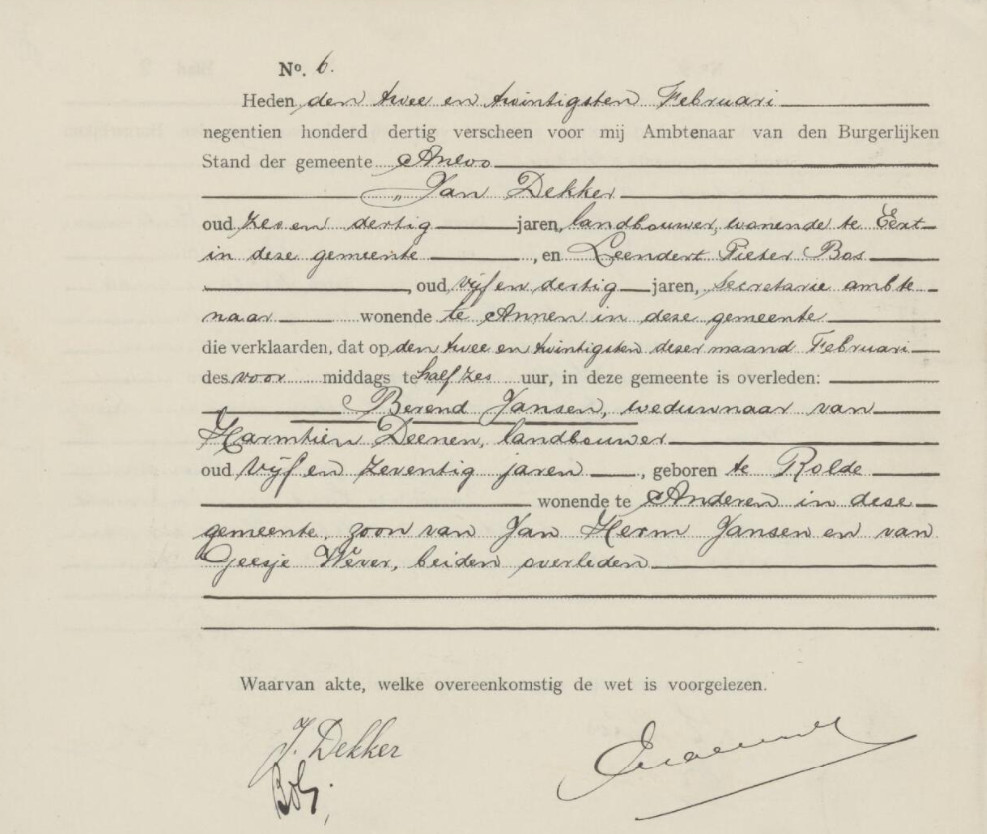 No. 6.
Heden den twee en twintigsten Februari
negentien honderd dertig verscheen voor mij Ambtenaar van den Burgerlijken
Stand der gemeente Anloo
Jan Dekker
oud zes en dertig jaren, landbouwer, wonende te Eext
in deze gemeente, en Leendert Pieter Bos
, oud vijf en dertig jaren, secretarie ambte
naar wonende te Annen in deze gemeente
die verklaarden, dat op den twee en twintigsten dezer maand Februari
des voor middags te half zes uur, in deze gemeente is overleden:
Berend Jansen, weduwnaar van
Harmtien Deenen, landbouwer
oud vijf en zeventig jaren, geboren te Rolde
wonende te Anderen in deze
gemeente, zoon van Jan Herm Jansen en van
Geesje Wever, beiden overleden
Waarvan akte, welke overeenkomstig de wet is voorgelezen.
J. Dekker
Bos.